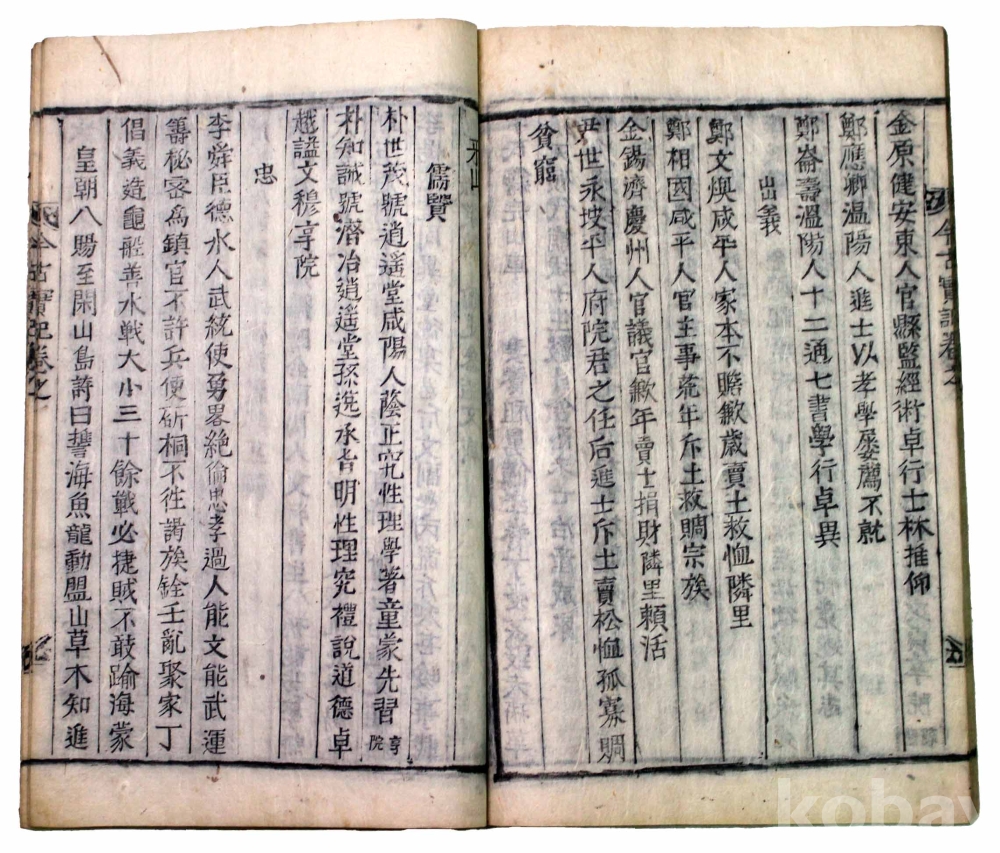 金原健安東人官縣監經術卓行士林推仰
鄭應卿溫陽人進士以孝學屢薦不就
鄭崙壽溫陽人十二通七書學行卓異
出義
鄭文煥咸平人家本不贍歉歲賣土救恤隣里
鄭相國咸平人官主事荒年斥土救賙宗族
金錫濟慶州人官議官歉年賣土捐財隣里賴活
尹世永坡平人府院君之任后進士斥土賣松恤孤寡賙
貧窮
儒賢
朴世茂號逍遙堂咸陽人蔭正究性理學著童蒙先習享院
朴知誠號潛冶逍遙堂孫選承旨明性理究禮說道德卓
越謚文穆享院
忠
李舜臣德水人武統使勇畧絶倫忠孝過人能文能武運
籌秘密爲鎭官不許兵使斫桐不徃謁族銓壬亂聚家丁
倡義造龜船善水戰大小三十餘戰必捷賊不敢踰海蒙
皇朝八賜至閑山島詩曰誓海魚龍動盟山草木知進
今古實記卷之
kobay